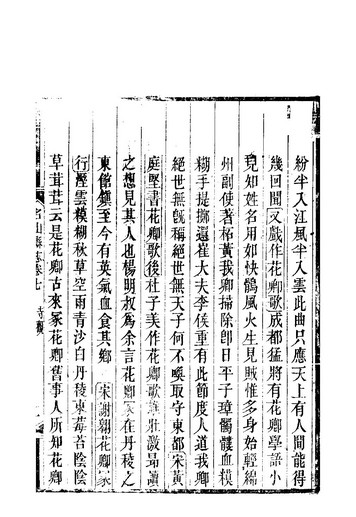 紛半入江風半入雲此曲只應天上有人間能得
幾回聞又戲作花卿歌成都猛將有花卿學語小
兒知姓名用如快鶻風火生見賊惟多身始輕綿
州副使著柘黃我卿掃除卽日平子璋髑髏血模
糊手提擲還崔大夫李侯重有此節度人道我卿
絕世無旣稱絕世無天子何不喚取守東都宋黃
庭堅書花卿歌後杜子美作花卿歌雄壯激昂讀
之想見其人也楊明叔爲余言花卿冢在丹稜之
東館鎮至今有英氣血食其鄉宋謝翱花卿冢
行溼雲模糊秋草空雨青沙白丹稜東莓苔陰陰
草茸茸云是花卿古來冢花卿舊事人所知花卿
名山縣志卷七